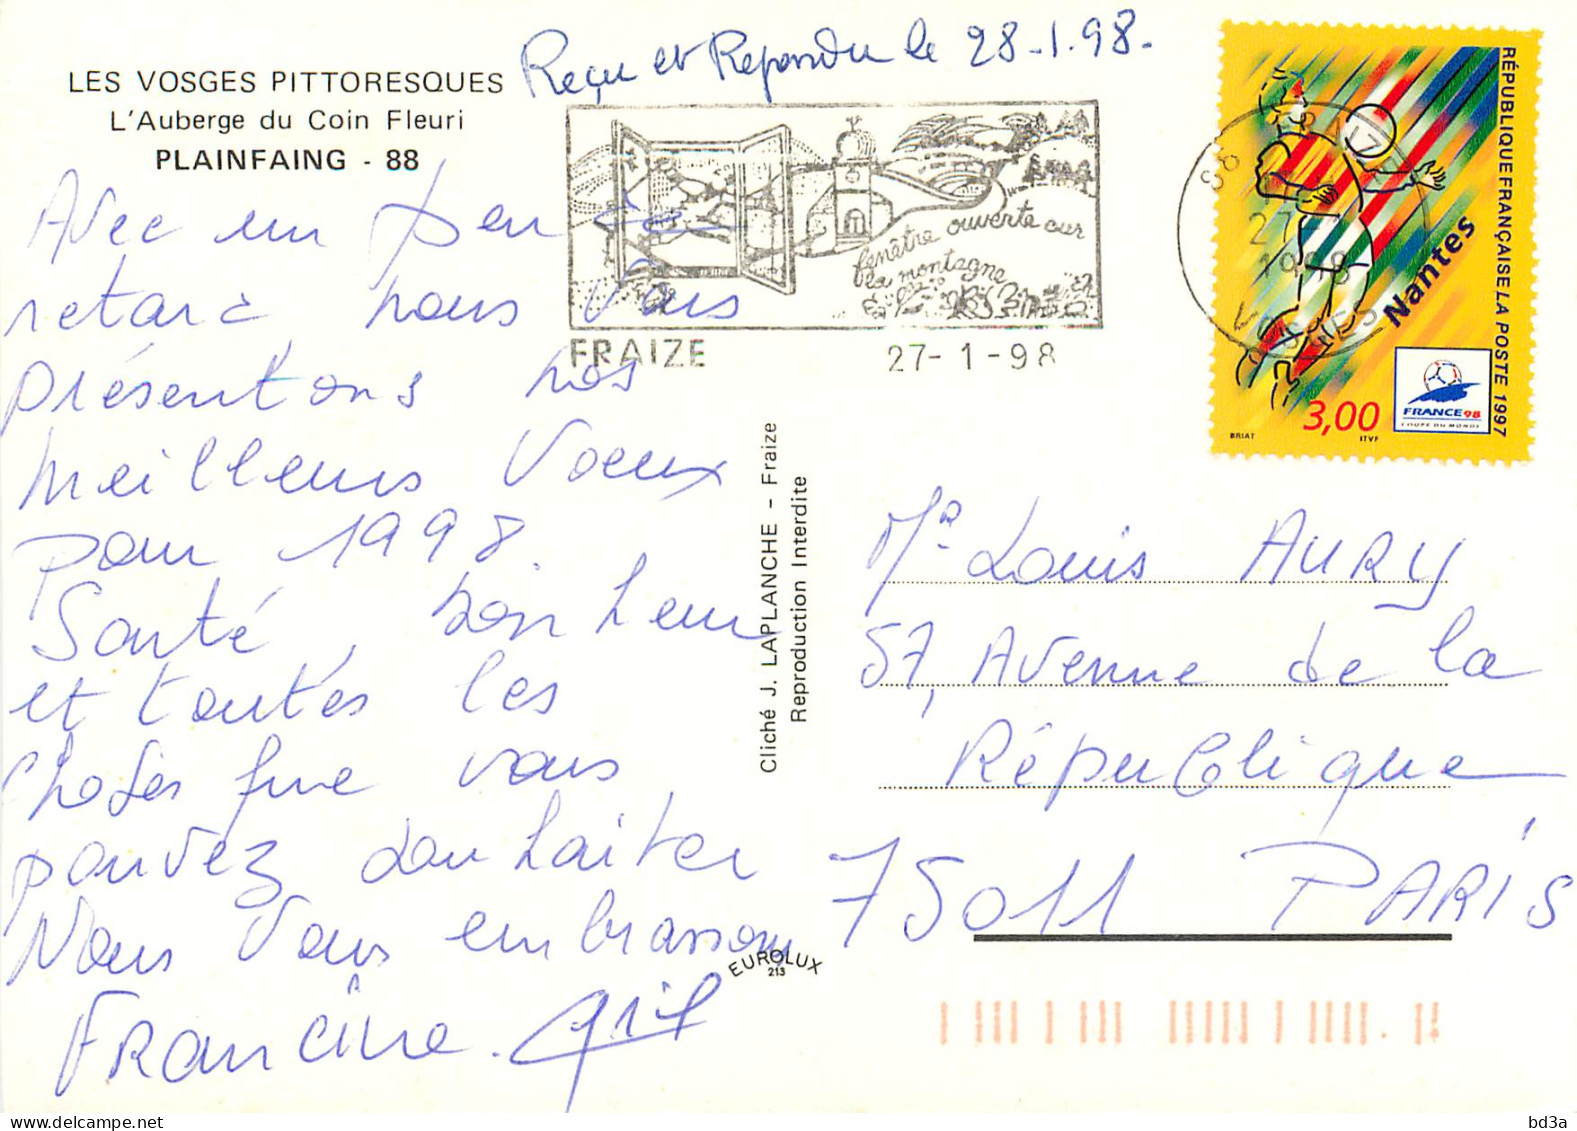 Reçu et Repondu le 28-1.98-
LES VOSGES PITTORESQUES
L'Auberge du Coin Fleuri
PLAINFAING - 88
Avec un peu de
retard nous vous
présentons nos
meilleurs Voeux
pour 1998.
Santé, bonheur
et toutes les
choses que vous
pouvez souhaiter
Nous Vous embrassons
Francine.
fenêtre ouverte sur
la montagne
FRAIZE 27-1-98
88 FRAIZE
27
1998
VOSGES
RÉPUBLIQUE FRANÇAISE LA POSTE 1997
Nantes
3,00
FRANCE 98
COUPE DU MONDE
BRIAT ITVF
Cliché J. LAPLANCHE - Fraize
Reproduction Interdite
EUROLUX
213
Mr Louis AURY
57, Avenue de la
République
75011 PARIS
bd3a